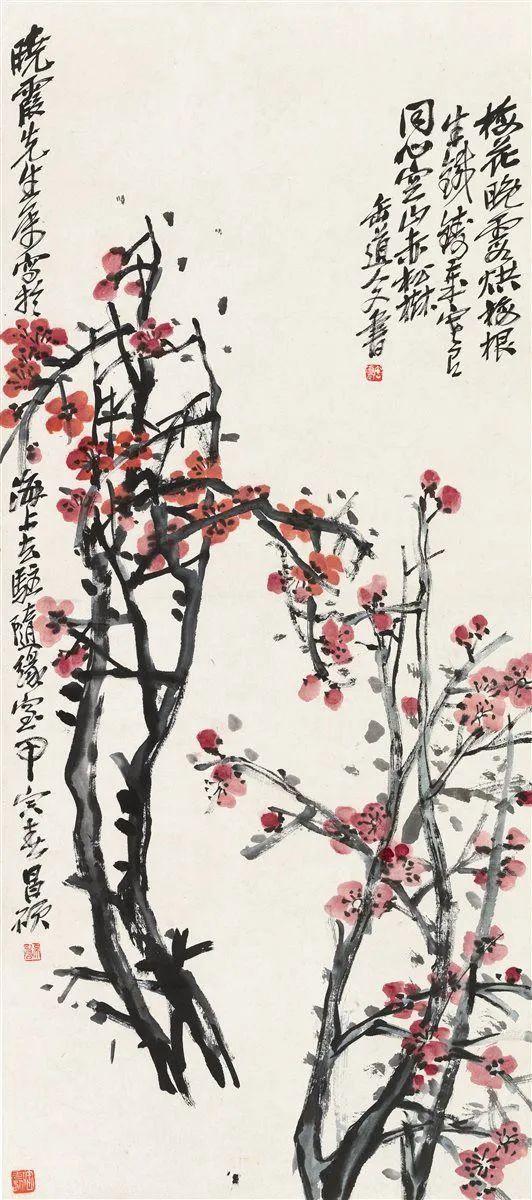 梅花晚霞烘梅根
生鐵鑄歲寒
同心空山赤松樹
缶道人又書
曉霞先生屬寫於海上去駐隨緣室甲寅春昌碩